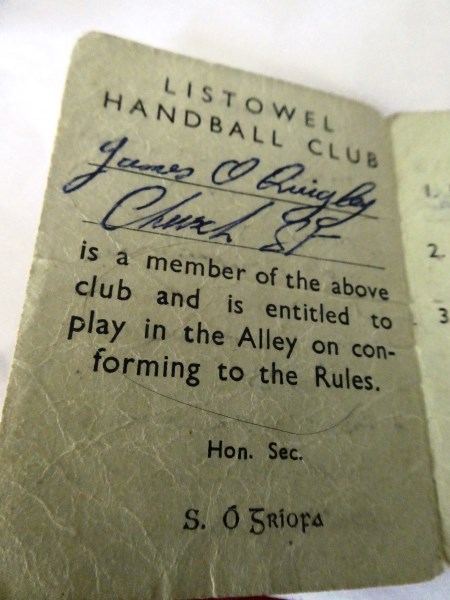 LISTOWEL
HANDBALL CLUB
James O Quigley
Church St
is a member of the above
club and is entitled to
play in the Alley on con-
forming to the Rules.
Hon. Sec.
S. Ó Gríofa
1.
2.
3